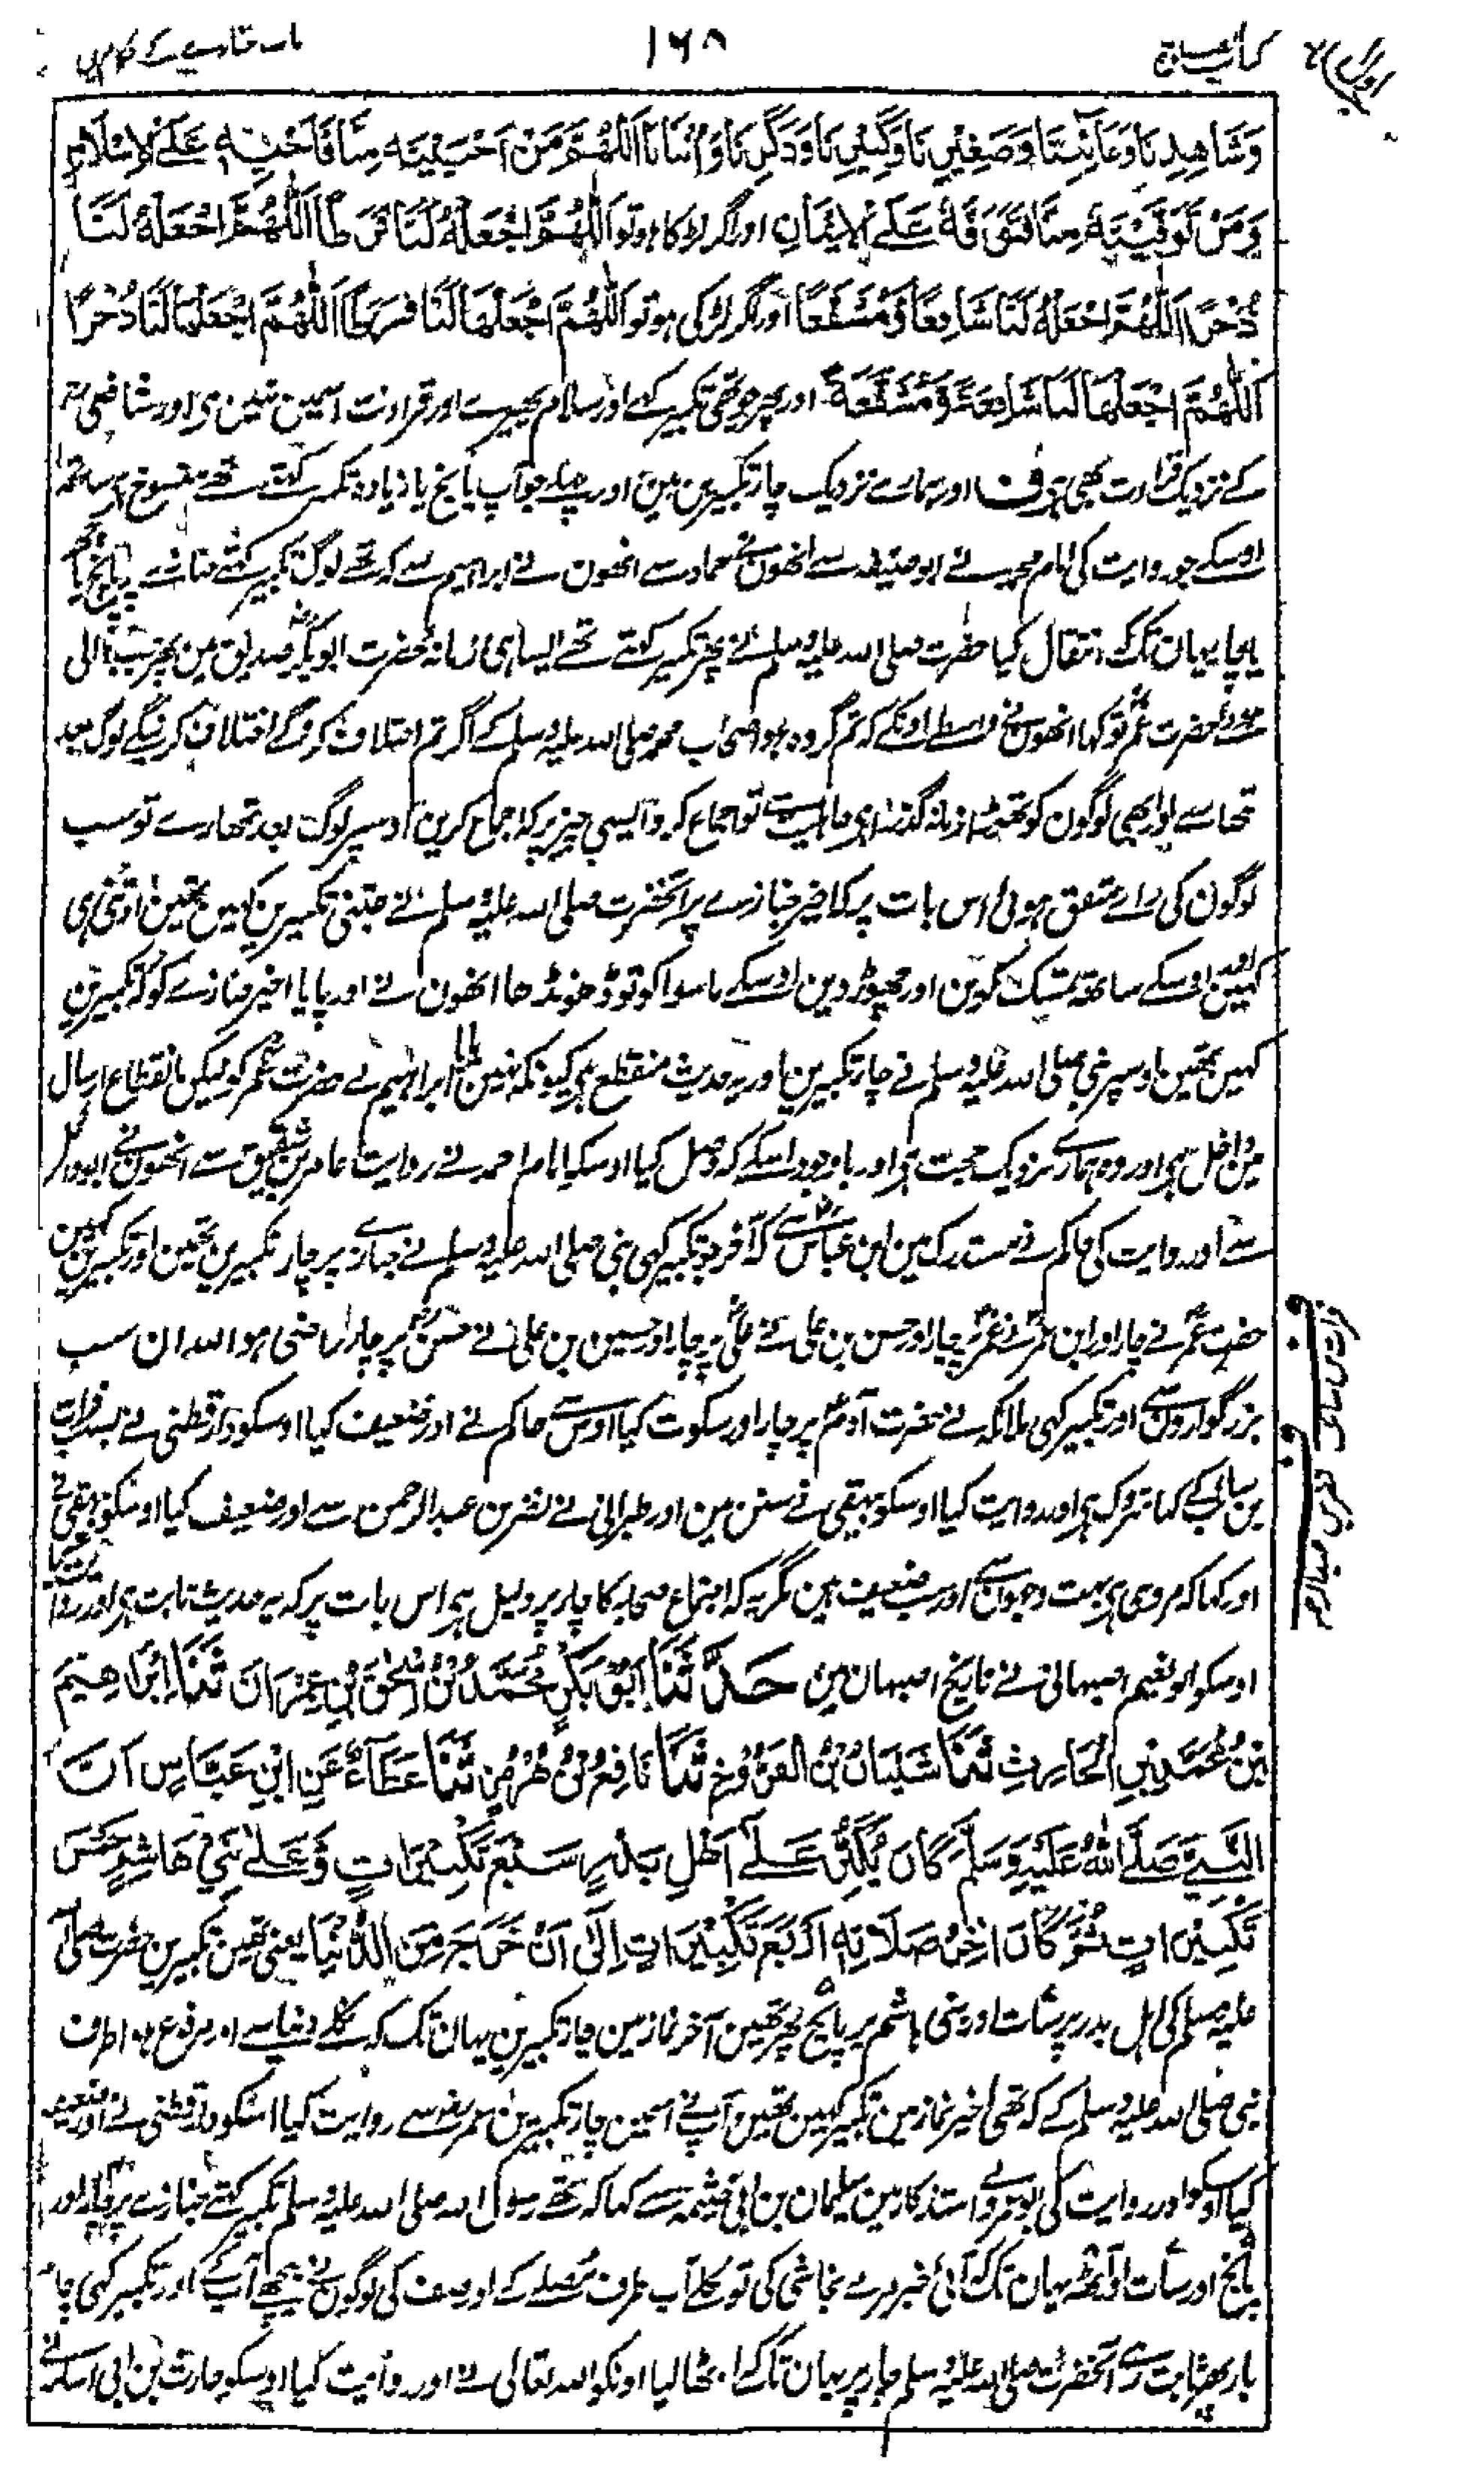 كتاب الصلوة
۱۶۸
باب جنازے کے نماز میں
وَشَاهِدِنَا وَغَائِبِنَا وَصَغِيْرِنَا وَكَبِيْرِنَا وَذَكَرِنَا وَاُنْثَانَا اَللّٰهُمَّ مَنْ اَحْيَيْتَهٗ مِنَّا فَاَحْيِهٖ عَلَى الْاِسْلَامِ
وَمَنْ تَوَفَّيْتَهٗ مِنَّا فَتَوَفَّهٗ عَلَى الْاِيْمَانِ اور اگر لڑکا ہو تو اَللّٰهُمَّ اجْعَلْهُ لَنَا فَرَطًا اَللّٰهُمَّ اجْعَلْهُ لَنَا
ذُخْرًا اَللّٰهُمَّ اجْعَلْهُ لَنَا شَافِعًا وَّمُشَفَّعًا اور اگر لڑکی ہو تو اَللّٰهُمَّ اجْعَلْهَا لَنَا فَرَطًا اَللّٰهُمَّ اجْعَلْهَا لَنَا ذُخْرًا
اَللّٰهُمَّ اجْعَلْهَا لَنَا شَافِعَةً وَّمُشَفَّعَةً اور پھر چوتھی تکبیر کہے اور سلام پھیرے اور قراءت اسمین نہین ہی اور شافعی
کے نزدیک قراءت بھی ہی ف اور ہمارے نزدیک چار تکبیرین ہین اور پہلے جو آپ پانچ یا زیادہ تکبیر کہتے تھے منسوخ ہی ساتھ
اوسکے جو روایت کی امام محمد نے ابو حنیفہ سے انھون نے حماد سے انھون نے ابراہیم سے کہ تھے لوگ تکبیر کہتے جنازے پر پانچ یا چھ
یا چار یہان تک کہ انتقال کیا حضرت صلی اللہ علیہ وسلم نے پھر تکبیر کہتے تھے ایسا ہی زمانہ حضرت ابوبکر صدیق مین پھر جب والی
ہوے حضرت عمر تو کہا انھون نے واسطے اونکے کہ تم گروہ ہو اصحاب محمد صلی اللہ علیہ وسلم کے اگر تم اختلاف کروگے اختلاف کرینگے لوگ بعد
تمھارے اور ابھی لوگون کو تھوڑا زمانہ گذرا ہی جاہلیت سے تو اجماع کرو ایسی چیز پر کہ اجماع کرین اوسپر لوگ بعد تمھارے تو سب
لوگون کی راے متفق ہوئی اس بات پر کہ اخیر جنازے پر آنحضرت صلی اللہ علیہ وسلم نے جتنی تکبیرین کہین تھین اوتنی ہی
کہین اور اوسکے ساتھ تمسک کرین اور چھوڑ دین اوسکے ماسوا کو تو ڈھونڈھا انھون نے اور پایا اخیر جنازے کو کہ تکبیرین
کہین تھین اوسپر نبی صلی اللہ علیہ وسلم نے چار تکبیرین اور یہ حدیث منقطع ہی کیونکہ نہین ملا ابراہیم نے حضرت عمر کو لیکن انقطاع ارسال
مین داخل ہی اور وہ ہمارے نزدیک حجت ہی اور باوجود اسکے کہ وصل کیا اوسکیا امام احمد نے روایت عامر بن شقیق سے انھون نے ابو وائل
سے اور روایت کی حاکم نے مستدرک مین ابن عباس سے کہ آخر جو تکبیر کہی نبی صلی اللہ علیہ وسلم نے جنازہ پر چار تکبیرین تھین اور تکبیرین کہین
حضرت عمر نے چار اور ابن عمر نے عمر پر چار اور حسن بن علی نے علی پر چار اور حسین بن علی نے حسن پر چار راضی ہو اللہ ان سب
بزرگوارون سے اور تکبیر کہی ملائکہ نے حضرت آدم پر چار اور سکوت کیا اوس سے حاکم نے اور ضعیف کیا اوسکو دارقطنی نے بسبب فرات
بن سائب کے کہا متروک ہی اور روایت کیا اوسکو بیہقی نے سنن مین اور طبرانی نے نضر بن عبدالرحمن سے اور ضعیف کیا اوسکو بیہقی نے
اور کہا کہ مروی ہی بہت وجہون سے اور سب ضعیف ہین مگر یہ کہ اجتماع صحابہ کا چار پر دلیل ہی اس بات پر کہ یہ حدیث ثابت ہی اور روایت کیا
اوسکو ابو نعیم اصبہانی نے تاریخ اصبہان مین حَدَّثَنَا اَبُوْ بَكْرٍ مُحَمَّدُ بْنُ اِسْحٰقَ بْنِ عِمْرَانَ ثَنَا اِبْرَاهِيْمُ
بْنُ مُحَمَّدِ بْنِ الْحَارِثِ ثَنَا شَيْبَانُ بْنُ الْفَرُّوْخِ ثَنَا نَافِعُ بْنُ هُرْمُزَ ثَنَا عَطَآءٌ عَنِ ابْنِ عَبَّاسٍ اَنَّ
النَّبِيَّ صَلَّى اللّٰهُ عَلَيْهِ وَسَلَّمَ كَانَ يُكَبِّرُ عَلٰى اَهْلِ بَدْرٍ سَبْعَ تَكْبِيْرَاتٍ وَّعَلٰى بَنِيْ هَاشِمٍ خَمْسَ
تَكْبِيْرَاتٍ ثُمَّ كَانَ اٰخِرُ صَلَاتِهٖ اَرْبَعَ تَكْبِيْرَاتٍ اِلٰى اَنْ خَرَجَ مِنَ الدُّنْيَا یعنی تھین تکبیرین حضرت صلی اللہ
علیہ وسلم کی اہل بدر پر سات اور بنی ہاشم پر پانچ پھر تھین آخر نماز مین چار تکبیرین یہان تک کہ نکلے دنیا سے اور مرفوع ہی اطرف
نبی صلی اللہ علیہ وسلم کے کہ تھی اخیر نماز مین تکبیر کہین تھین آپ نے اسمین چار تکبیرین عمر سے روایت کیا اسکو دارقطنی نے اور ضعیف
کیا اوسکو اور روایت کی ابو عمر نے استذکار مین سلیمان بن ابی حثمہ سے کہا کہ تھے رسول اللہ صلی اللہ علیہ وسلم تکبیر کہتے جنازے پر چار اور
پانچ اور سات اور آٹھ یہان تک کہ آئی خبر مرے نجاشی کی تو نکلے آپ طرف مصلے کے اور صف کی لوگون نے پیچھے آپ کے اور تکبیر کہی چار
بار پھر ثابت رہے آنحضرت صلی اللہ علیہ وسلم چار پر یہان تک کہ اٹھا لیا اونکو اللہ تعالی نے اور روایت کیا اوسکو حارث بن ابی اسامہ نے